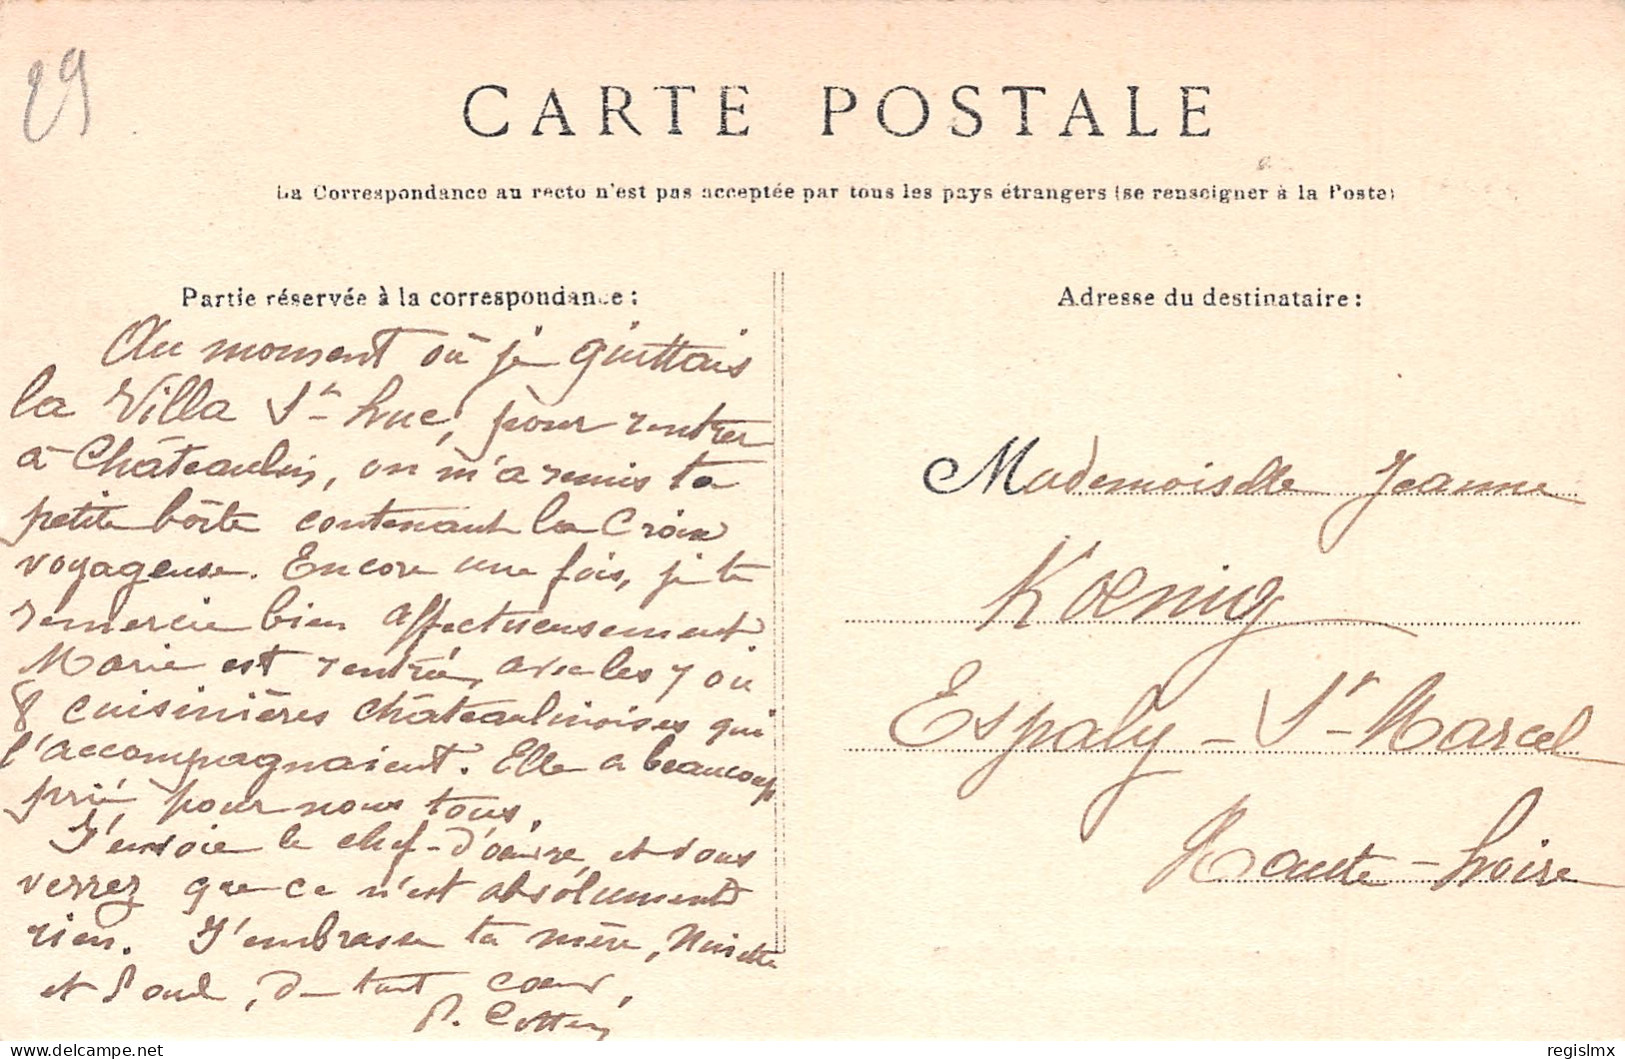 29
CARTE POSTALE
La Correspondance au recto n'est pas acceptée par tous les pays étrangers (se renseigner à la Poste)
Partie réservée à la correspondance :
Au moment où je quittais
la Villa St-Luc, pour rentrer
à Châteaulin, on m'a remis ta
petite boîte contenant la Croix
voyageuse. Encore une fois, je te
remercie bien affectueusement
Marie est rentrée, avec les 7 ou
8 cuisinières châteaulinoises qui
l'accompagnaient. Elle a beaucoup
prié pour nous tous.
J'envoie le chef-d'œuvre, et vous
verrez que ce n'est absolument
rien. J'embrasse ta mère,
et Paul, de tout cœur,
P.
Adresse du destinataire :
Mademoiselle Jeanne
Koenig
Espaly-St-Marcel
Haute-Loire
delcampe.net
regislmx